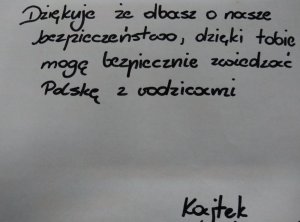 Dziękuje że dbasz o nasze
bezpieczeństwo, dzięki tobie
mogę bezpiecznie zwiedzać
Polskę z rodzicami
Kajtek